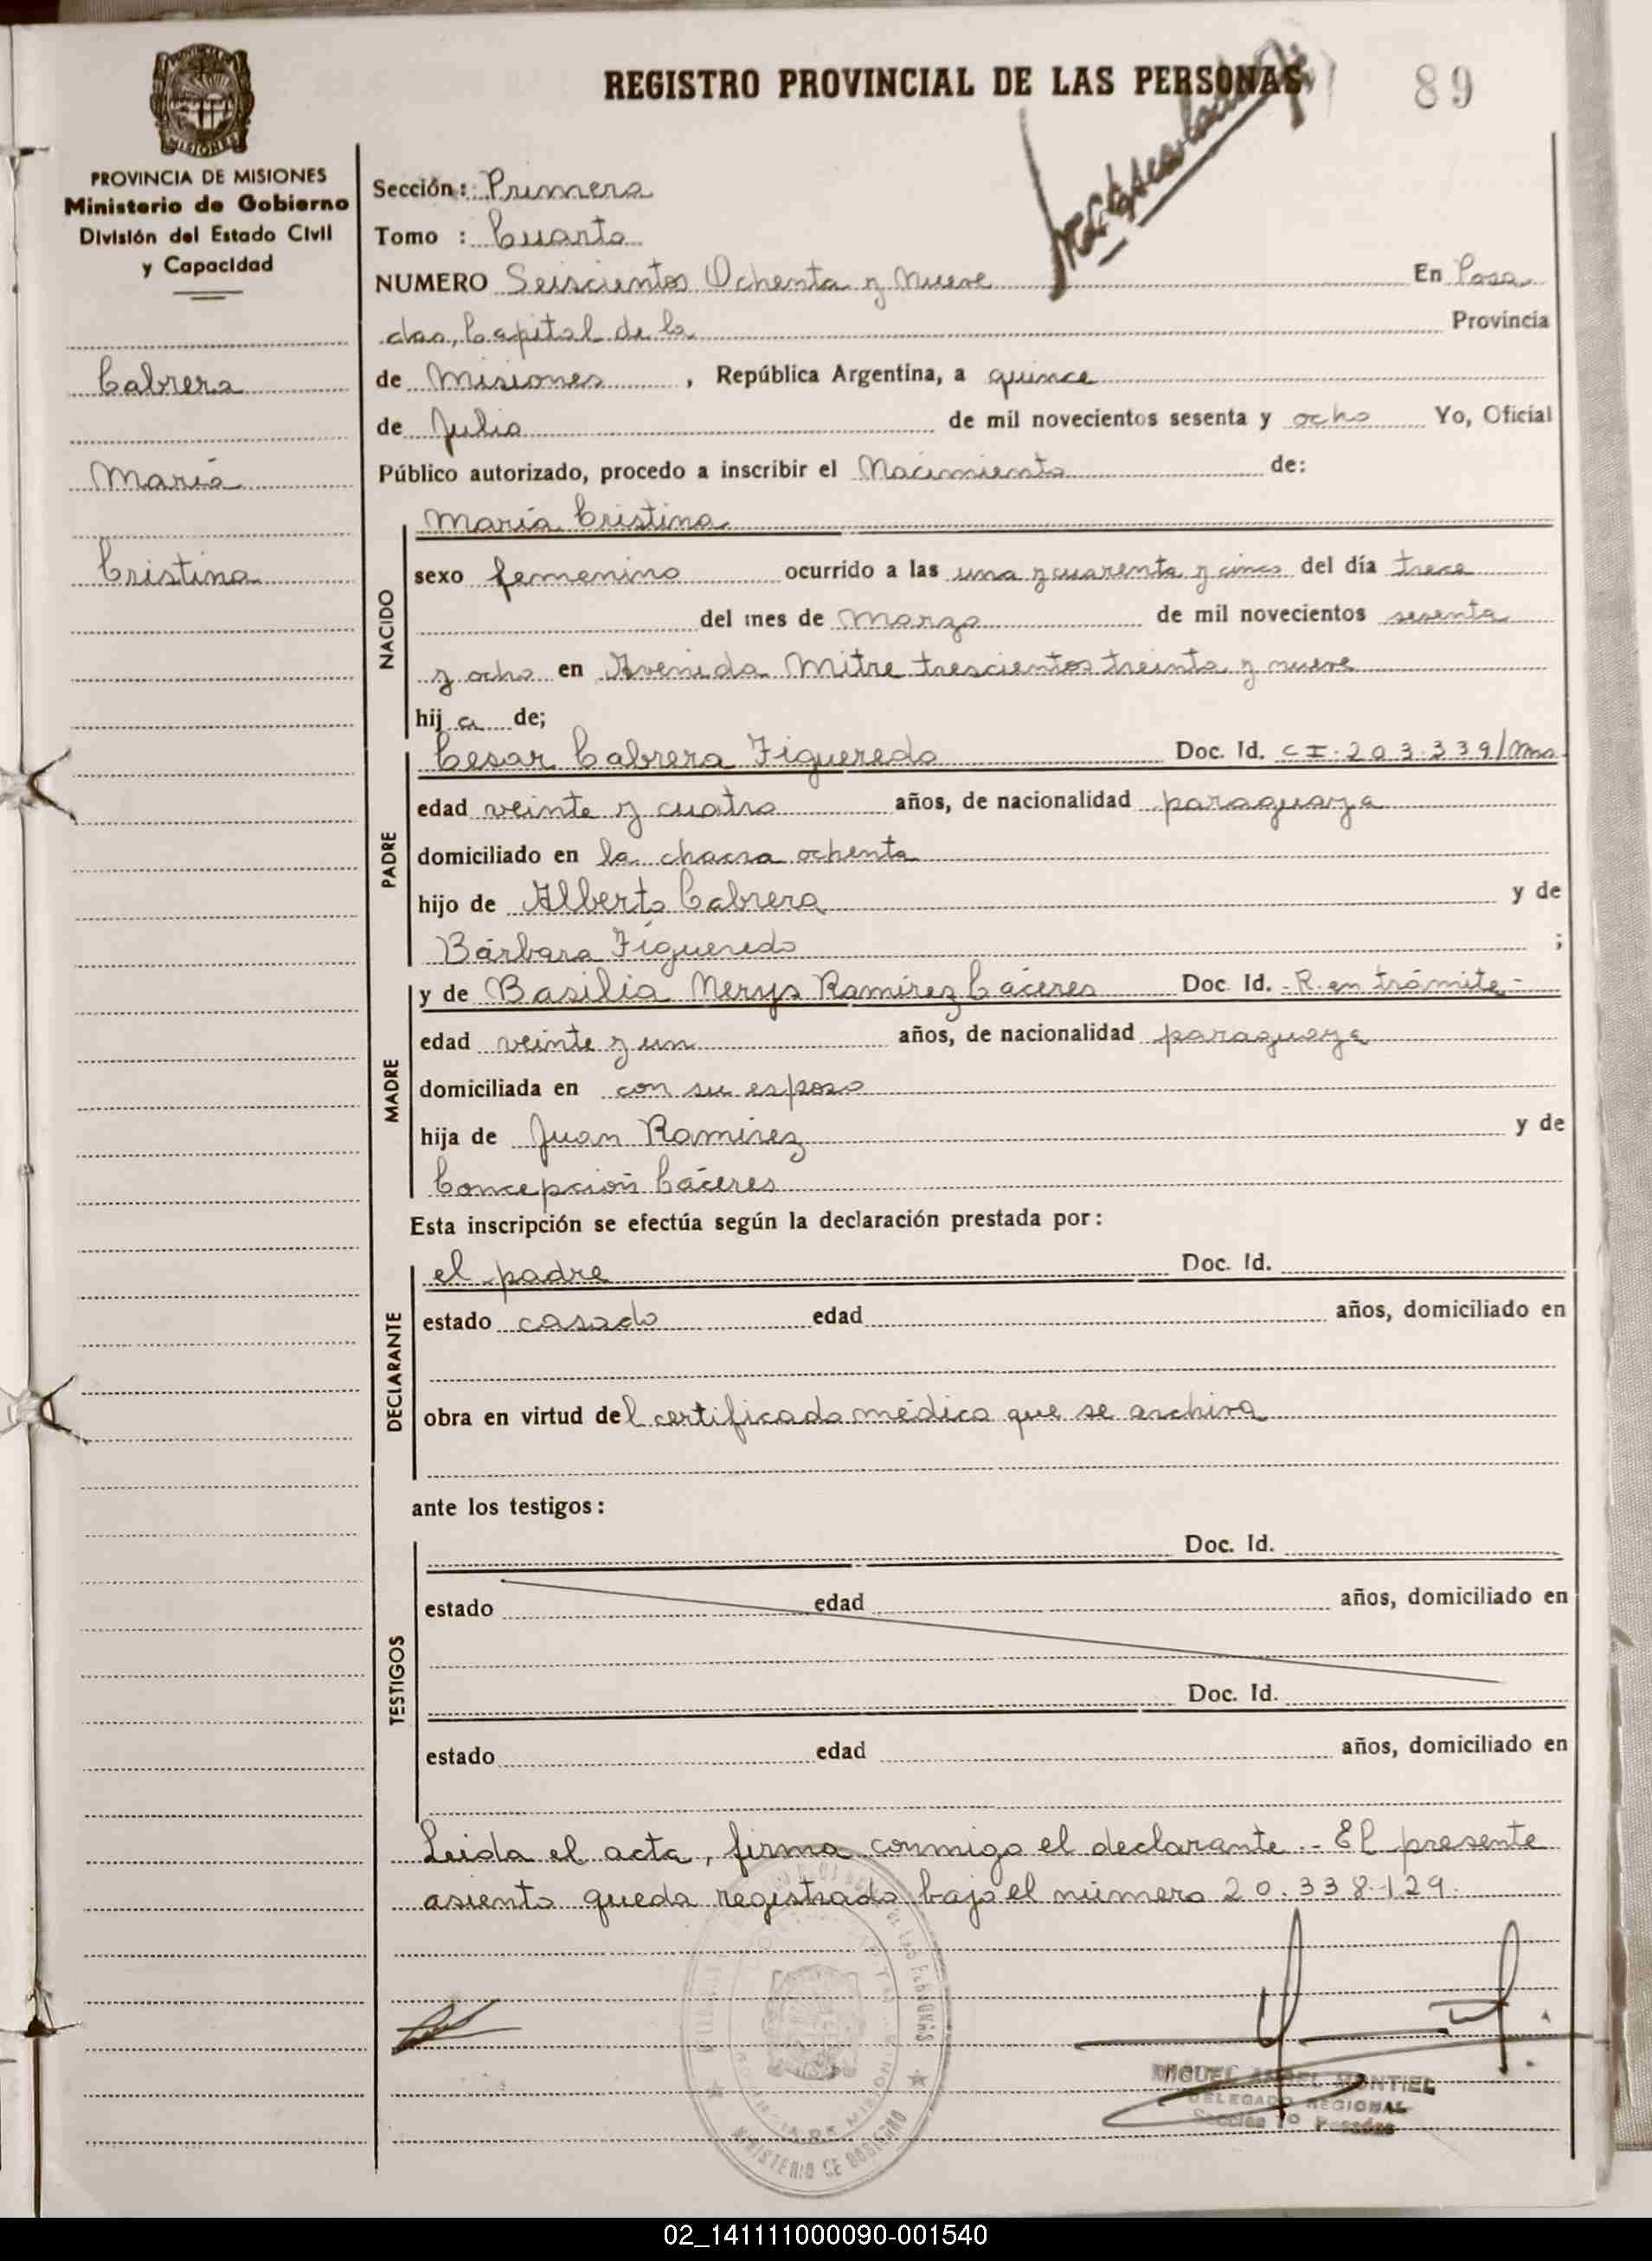 REGISTRO PROVINCIAL DE LAS PERSONAS
89
MISIONES
PROVINCIA DE MISIONES
Ministerio de Gobierno
División del Estado Civil
y Capacidad
Cabrera
María
Cristina
Sección: Primera
Tomo : Cuarto
NUMERO Seiscientos Ochenta y nueve En Posa
das, Capital de la Provincia
de Misiones , República Argentina, a quince
de Julio de mil novecientos sesenta y ocho Yo, Oficial
Público autorizado, procedo a inscribir el Nacimiento de:
NACIDO
María Cristina
sexo femenino ocurrido a las una y cuarenta y cinco del día trece
del mes de marzo de mil novecientos sesenta
y ocho en Avenida Mitre trescientos treinta y nueve
hija de;
PADRE
Cesar Cabrera Figueredo Doc. Id. CI. 203.339/Mns
edad veinte y cuatro años, de nacionalidad paraguaya
domiciliado en la chacra ochenta
hijo de Alberto Cabrera y de
Bárbara Figueredo ;
MADRE
y de Basilia Nerys Ramírez Cáceres Doc Id. - R. en trámite -
edad veinte y un años, de nacionalidad paraguaya
domiciliada en con su esposo
hija de Juan Ramírez y de
Concepción Cáceres
Esta inscripción se efectúa según la declaración prestada por:
DECLARANTE
el padre Doc. Id.
estado casado edad años, domiciliado en
obra en virtud del certificado médico que se archiva
ante los testigos:
TESTIGOS
Doc. Id.
estado edad años, domiciliado en
Doc. Id.
estado edad años, domiciliado en
Leida el acta, firma conmigo el declarante.- El presente
asiento queda registrado bajo el número 20.338.129.
MINISTERIO DE GOBIERNO
MIGUEL ANGEL MONTIEL
DELEGADO REGIONAL
Sección 1º Posadas
02_141111000090-001540